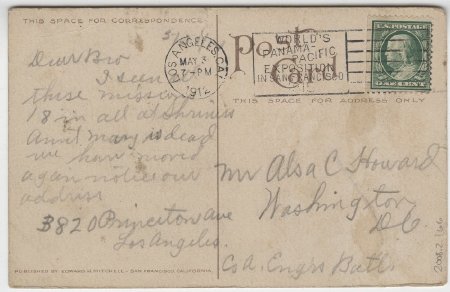 THIS SPACE FOR CORRESPONDENCE
Dear Bro
I seen
these missions
18 in all at Shriners
Aunt Mary is dead
we have moved
again notice our
address
3820 Princeton Ave
Los Angeles.
PUBLISHED BY EDWARD H. MITCHELL - SAN FRANCISCO, CALIFORNIA.
Post Card
LOS ANGELES, CAL.
MAY 3
7-PM
1912
WORLD'S
PANAMA-
PACIFIC
EXPOSITION
IN SAN FRANCISCO
1915
U.S. POSTAGE
ONE CENT
THIS SPACE FOR ADDRESS ONLY
Mr Alsa C Howard
Washington
D.C.
Co A. Engrs Batl.